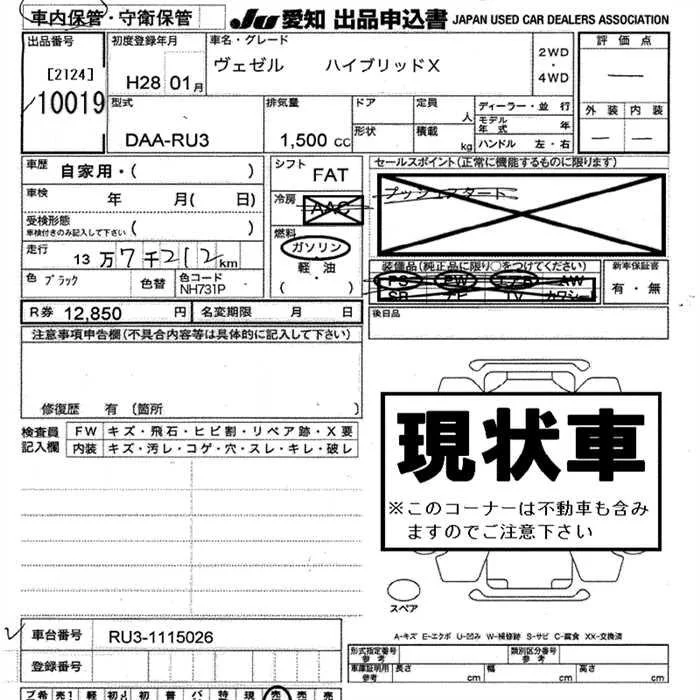 車内保管・守衛保管
JU 愛知 出品申込書 JAPAN USED CAR DEALERS ASSOCIATION
出品番号
[2124]
10019
初度登録年月
H28 01月
車名・グレード
ヴェゼル ハイブリッドX
2WD
・
4WD
評価点
外装 内装
型式
DAA-RU3
排気量
1,500 cc
ドア
形状
定員 人
積載 kg
ディーラー・並 行
モデル年式 年
ハンドル 左・右
車歴 自家用・( )
車検 年 月( 日)
受検形態
車検付きのみ記入して下さい ( )
走行 13万7千212km
色 ブラック
色替
色コード
NH731P
シフト
FAT
冷房
AAC
燃料
ガソリン
・
軽 油
・
( )
セールスポイント(正常に機能するものに限ります)
プッシュスタート
装備品(純正品に限り○をつけてください)
PS PW エアB AW
SR ナビ TV カワシート
新車保証書
有・無
後日品
R券 12,850 円
名変期限 月 日
注意事項申告欄(不具合内容等は具体的に記入して下さい)
修復歴 有 〔箇所 〕
検査員
記入欄
FW キズ・飛石・ヒビ割・リペア跡・X要
内装 キズ・汚レ・コゲ・穴・スレ・キレ・破レ
現状車
※このコーナーは不動車も含み
ますのでご注意下さい
スペア
A-キズ E-エクボ U-凹み W-補修跡 S-サビ C-腐食 XX-交換済
車台番号 RU3-1115026
登録番号
形式指定番号
参考
類別区分番号
参考
車庫証明用
参考
長さ cm 幅 cm 高さ cm